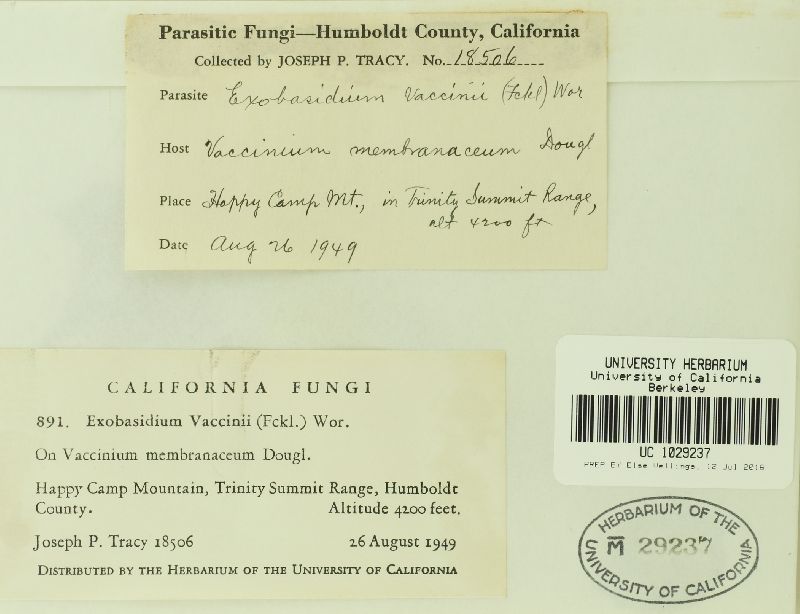 Parasitic Fungi—Humboldt County, California
Collected by JOSEPH P. TRACY. No. 18506
Parasite Exobasidium Vaccinii (Fckl) Wor
Host Vaccinium membranaceum Dougl
Place Happy Camp Mt., in Trinity Summit Range,
alt 4200 ft
Date Aug 26 1949
CALIFORNIA FUNGI
891. Exobasidium Vaccinii (Fckl.) Wor.
On Vaccinium membranaceum Dougl.
Happy Camp Mountain, Trinity Summit Range, Humboldt
County. Altitude 4200 feet.
Joseph P. Tracy 18506 26 August 1949
DISTRIBUTED BY THE HERBARIUM OF THE UNIVERSITY OF CALIFORNIA
UNIVERSITY HERBARIUM
University of California
Berkeley
UC 1029237
PREP BY Else Vellinga, 12 Jul 2016
HERBARIUM OF THE
M 29237
UNIVERSITY OF CALIFORNIA